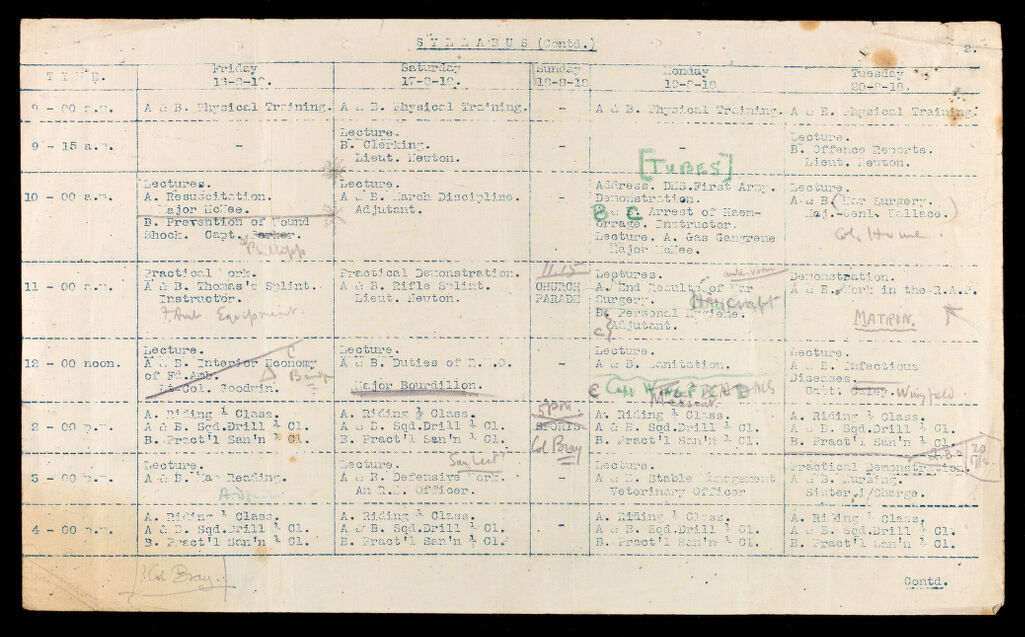 SYLLABUS (Contd.)
2.
TIME.
Friday
16-8-18.
Saturday
17-8-18.
Sunday
18-8-18
Monday
19-8-18
Tuesday
20-8-18.
8 - 00 a.m.
A & B. Physical Training.
A & B. Physical Training.
-
A & B. Physical Training.
A & B. Physical Training.
9 - 15 a.m.
-
Lecture.
B. Clerking.
Lieut. Newton.
-
-
Lecture.
B. Offence Reports.
Lieut. Newton.
[TUBES]
10 - 00 a.m.
Lectures.
A. Resuscitation.
Major McNee.
B. Prevention of Wound
Shock. Capt. Parker.
Phillipp
Lecture.
A & B. March Discipline.
Adjutant.
-
Address. DMS.First Army.
Demonstration.
B & C. Arrest of Haem-
orrage. Instructor.
Lecture. A. Gas Gangrene
Major McNee.
Lecture.
A & B (War Surgery.
Maj.-Genl. Wallace.)
Col. Hume.
11 - 00 a.m.
Practical Work.
A & B. Thomas's Splint.
Instructor.
F. Amb. Equipment.
Practical Demonstration.
A & B. Rifle Splint.
Lieut. Newton.
11.15
CHURCH
PARADE
Lectures.
A. End Results of War
Surgery. Haycraft
B. Personal Hygiene.
C} Adjutant.
Demonstration.
A & B. Work in the R.A.P.
MATRON.
12 - 00 noon.
Lecture.
A & B. Interior Economy
of Fd.Amb.
Lt.Col. Goodwin.
Lecture.
A & B. Duties of R.M.O.
Major Bourdillon.
-
Lecture.
A & B. Sanitation.
C Capt
Lecture.
A & B. Infectious
Diseases.
Capt. Caley. Wingfield.
2 - 00 p.m.
A. Riding ½ Class.
A & B. Sqd.Drill ½ Cl.
B. Pract'l San'n ½ Cl.
A. Riding ½ Class.
A & B. Sqd.Drill ½ Cl.
B. Pract'l San'n ½ Cl.
5pm
SPORTS
Col Bray
A. Riding ½ Class.
A & B. Sqd.Drill ½ Cl.
B. Pract'l San'n ½ Cl.
A. Riding ½ Class.
A & B. Sqd.Drill ½ Cl.
B. Pract'l San'n ½ Cl.
3 - 00 p.m.
Lecture.
A & B. Map Reading.
Lecture.
A & B. Defensive Work.
An R.E. Officer.
-
Lecture.
A & B. Stable Management
Veterinary Officor
Practical Demonstration.
A & B. Nursing.
Sister i/Charge.
4 - 00 p.m.
A. Riding ½ Class.
A & B. Sqd.Drill ½ Cl.
B. Pract'l San'n ½ Cl.
A. Riding ½ Class.
A & B. Sqd.Drill ½ Cl.
B. Pract'l San'n ½ Cl.
-
A. Riding ½ Class.
A & B. Sqd.Drill ½ Cl.
B. Pract'l San'n ½ Cl.
A. Riding ½ Class.
A & B. Sqd.Drill ½ Cl.
B. Pract'l San'n ½ Cl.
? Col Bray.
Contd.